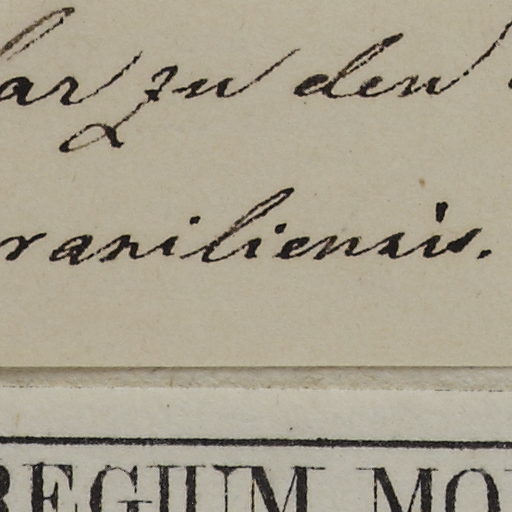 ar zu den
rasiliensis.
REGIUM MO